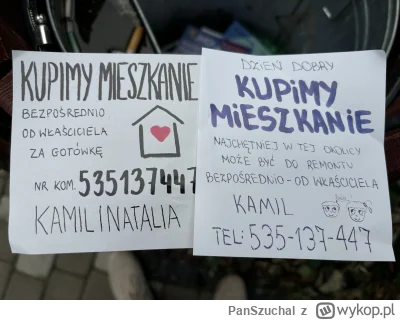 KUPIMY MIESZKANIE
BEZPOŚREDNIO
OD WŁAŚCICIELA
ZA GOTÓWKĘ
NR KOM. 535137447
KAMIL I NATALIA
DZIEŃ DOBRY
KUPIMY
MIESZKANIE
NAJCHĘTNIEJ W TEJ OKOLICY
MOŻE BYĆ DO REMONTU
BEZPOŚREDNIO - OD WŁAŚCICIELA
KAMIL
TEL: 535-137-447
PanSzuchal z wykop.pl